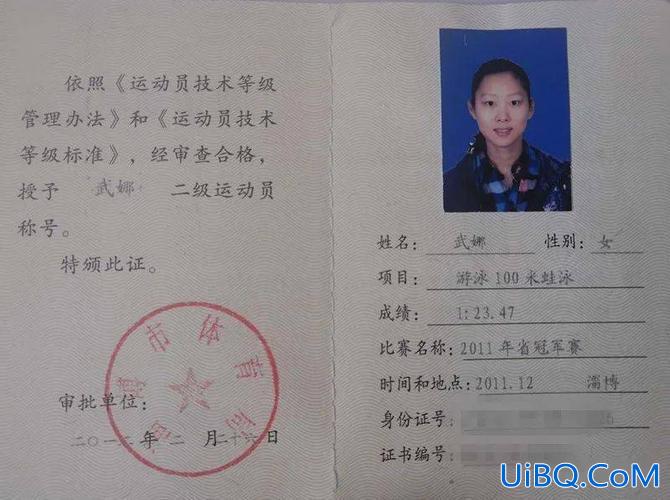 依照《运动员技术等级
管理办法》和《运动员技术
等级标准》，经审查合格，
授予 武娜 二级运动员
称号。
特颁此证。
淄博市体育局
审批单位：
二〇一二年二月二十六日
姓名：武娜 性别：女
项目：游泳100米蛙泳
成绩：1:23.47
比赛名称：2011年省冠军赛
时间和地点：2011.12 淄博
身份证号：
证书编号：
UiBQ.CoM